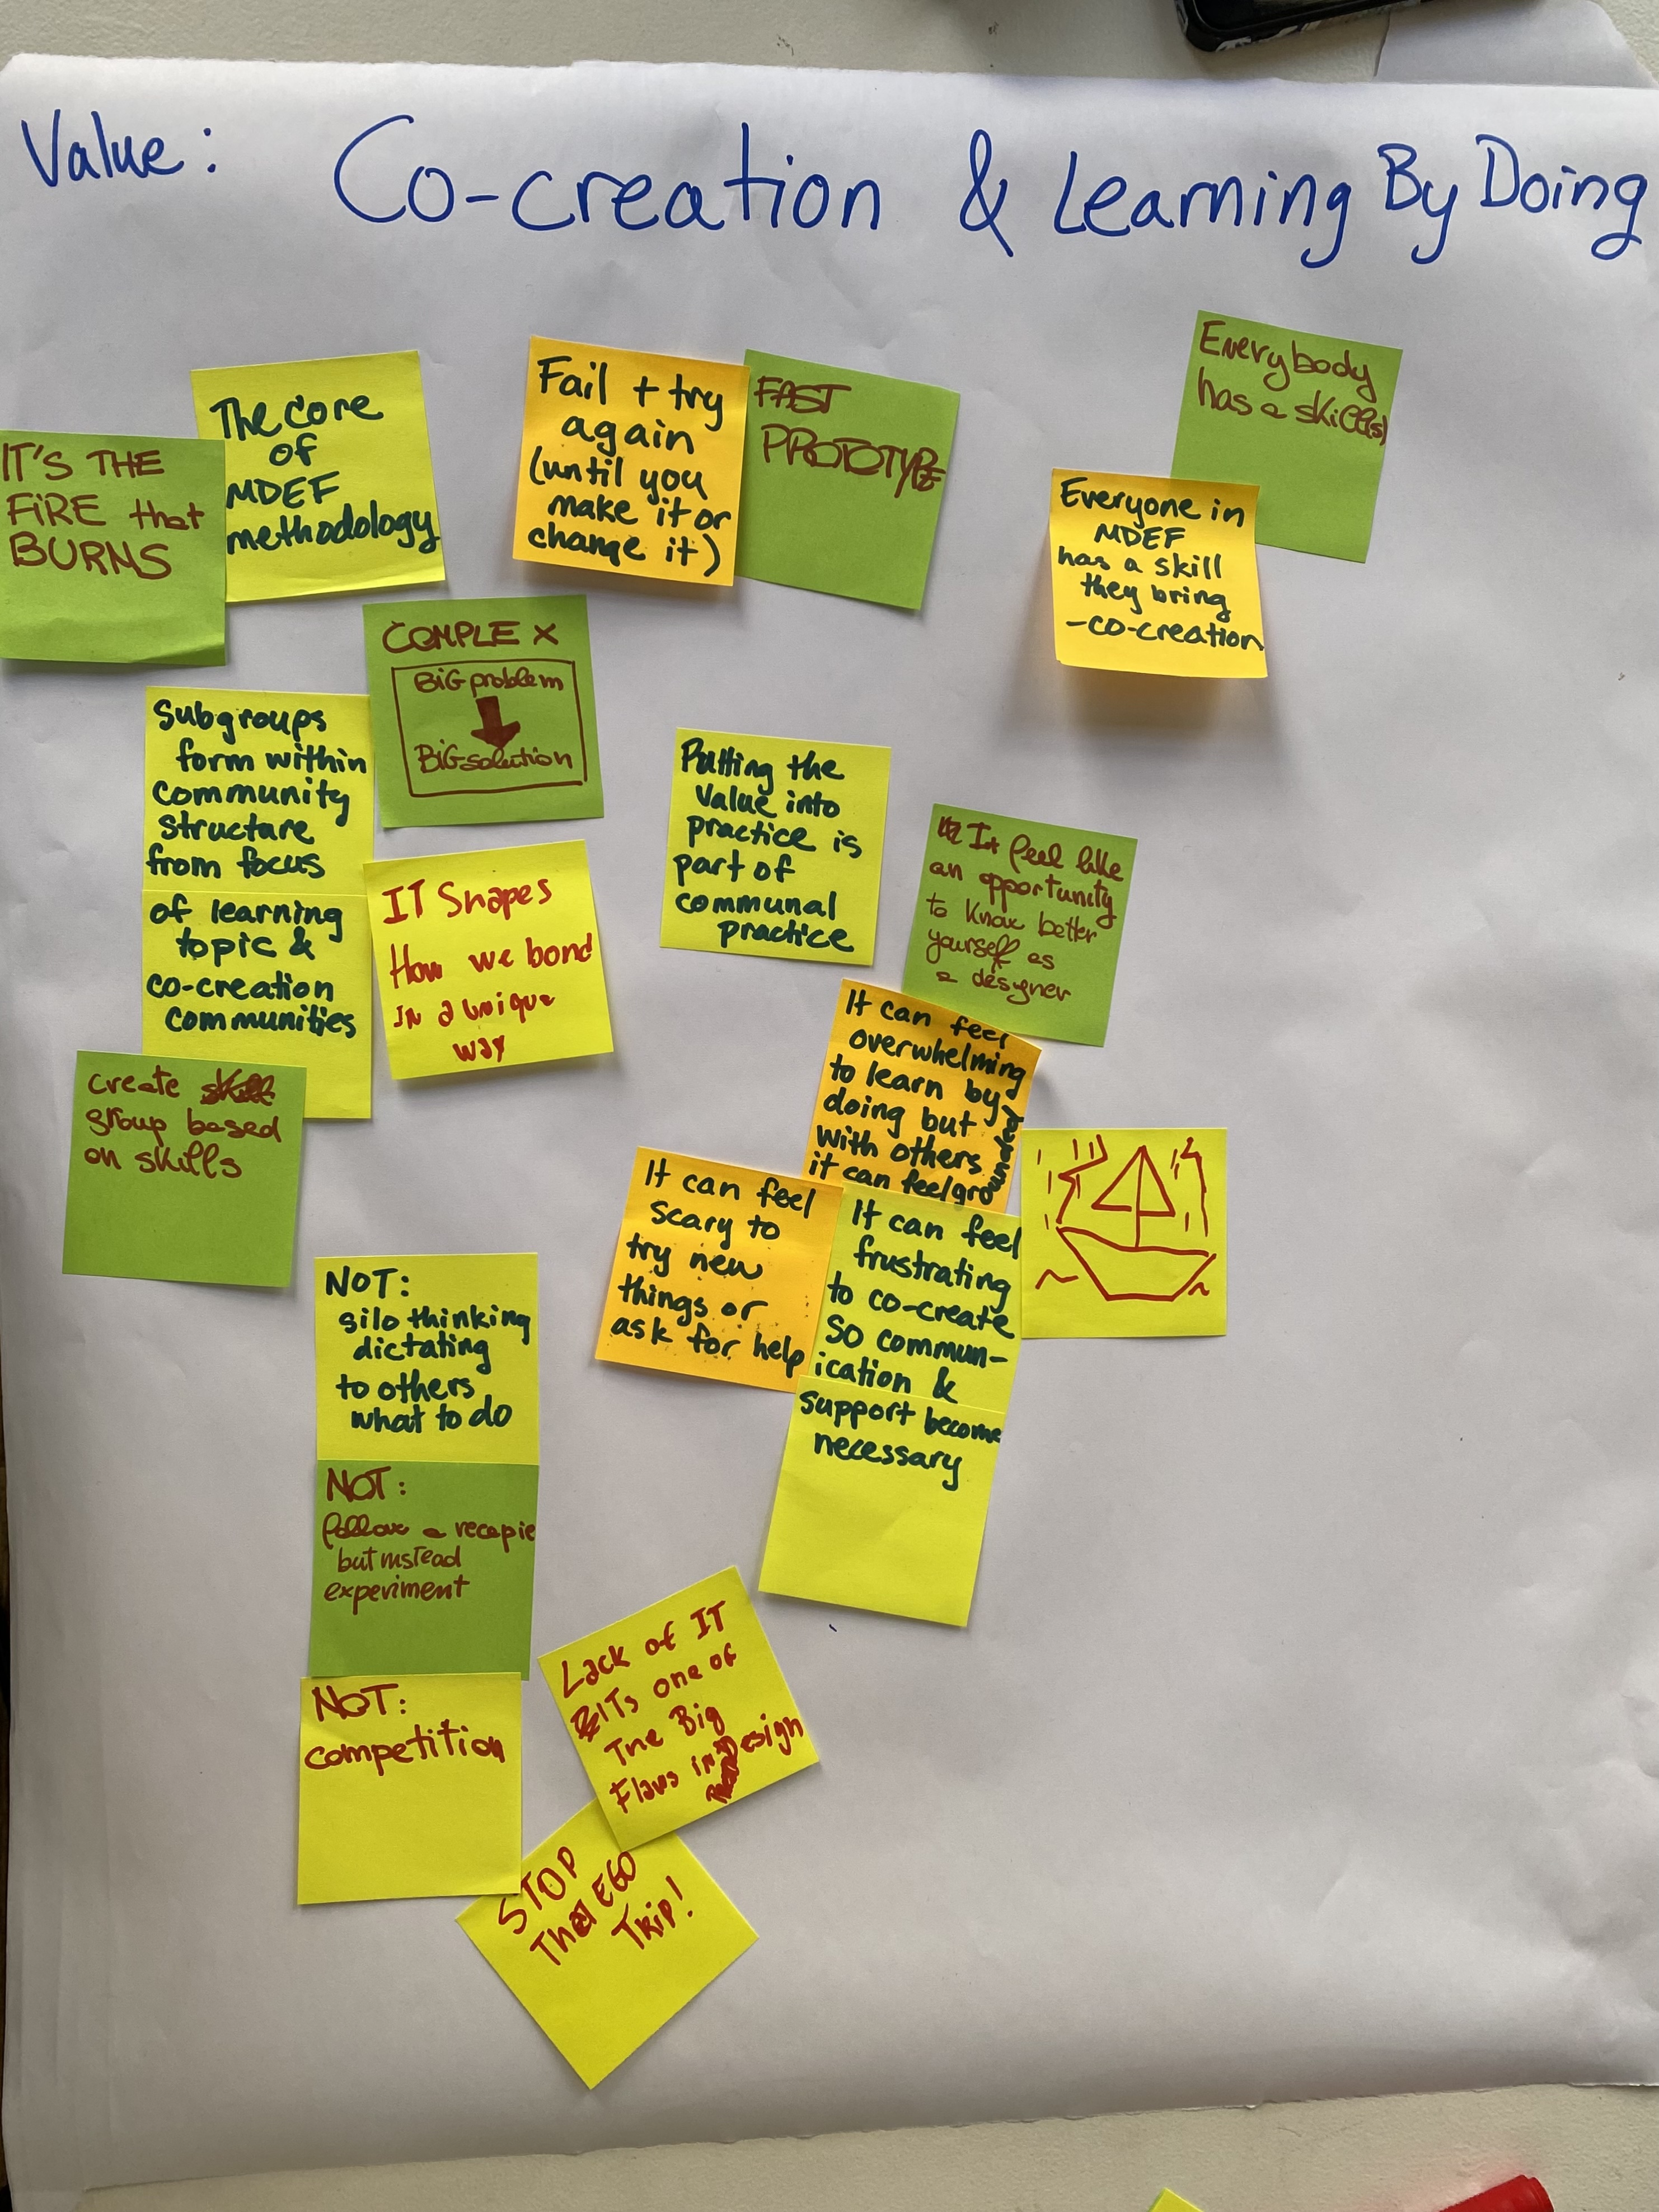 Value: Co-creation & Learning By Doing
IT'S THE
FIRE that
BURNS
The core
of
MDEF
methodology
Fail + try
again
(until you
make it or
change it)
FAST
PROTOTYPE
Everybody
has a skill(s)
Everyone in
MDEF
has a skill
they bring
-co-creation
COMPLEX
BIG problem
BIG solution
Subgroups
form within
community
structure
from focus
of learning
topic &
co-creation
communities
IT Shapes
How we bond
In a unique
way
create
group based
on skills
Putting the
value into
practice is
part of
communal
practice
It feel like
an opportunity
to know better
yourself as
a designer
It can feel
overwhelming
to learn by
doing but
with others
it can feel grounded
It can feel
scary to
try new
things or
ask for help
It can feel
frustrating
to co-create
so commun-
ication &
support become
necessary
NOT:
silo thinking
dictating
to others
what to do
NOT:
follow a recepie
but instead
experiment
NOT:
competition
Lack of IT
ITs one of
The Big
Flaws in Design
STOP
That EGO
Trip!